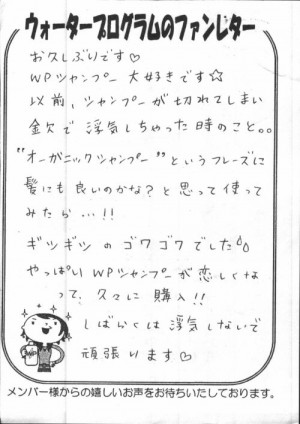 ウォータープログラムのファンレター
お久しぶりです♡
WPシャンプー 大好きです☆
以前、シャンプーが切れてしまい
金欠で浮気しちゃった時のこと。。
"オーガニックシャンプー"というフレーズに
髪にも良いのかな?と思って使って
みたら…!!
ギシギシのゴワゴワでした
やっぱりWPシャンプーが恋しくな
って、久々に購入!!
しばらくは浮気しないで
頑張ります♡
メンバー様からの嬉しいお声をお待ちいたしております。